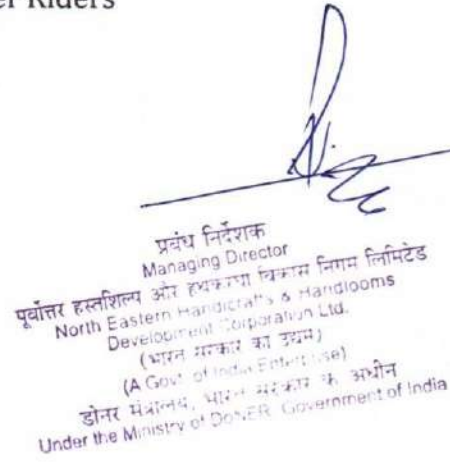 er Riders
प्रबंध निदेशक
Managing Director
पूर्वोत्तर हस्तशिल्प और हथकरघा विकास निगम लिमिटेड
North Eastern Handicrafts & Handlooms
Development Corporation Ltd.
(भारत सरकार का उद्यम)
(A Govt. of India Enterprise)
डोनर मंत्रालय, भारत सरकार के अधीन
Under the Ministry of DoNER, Government of India